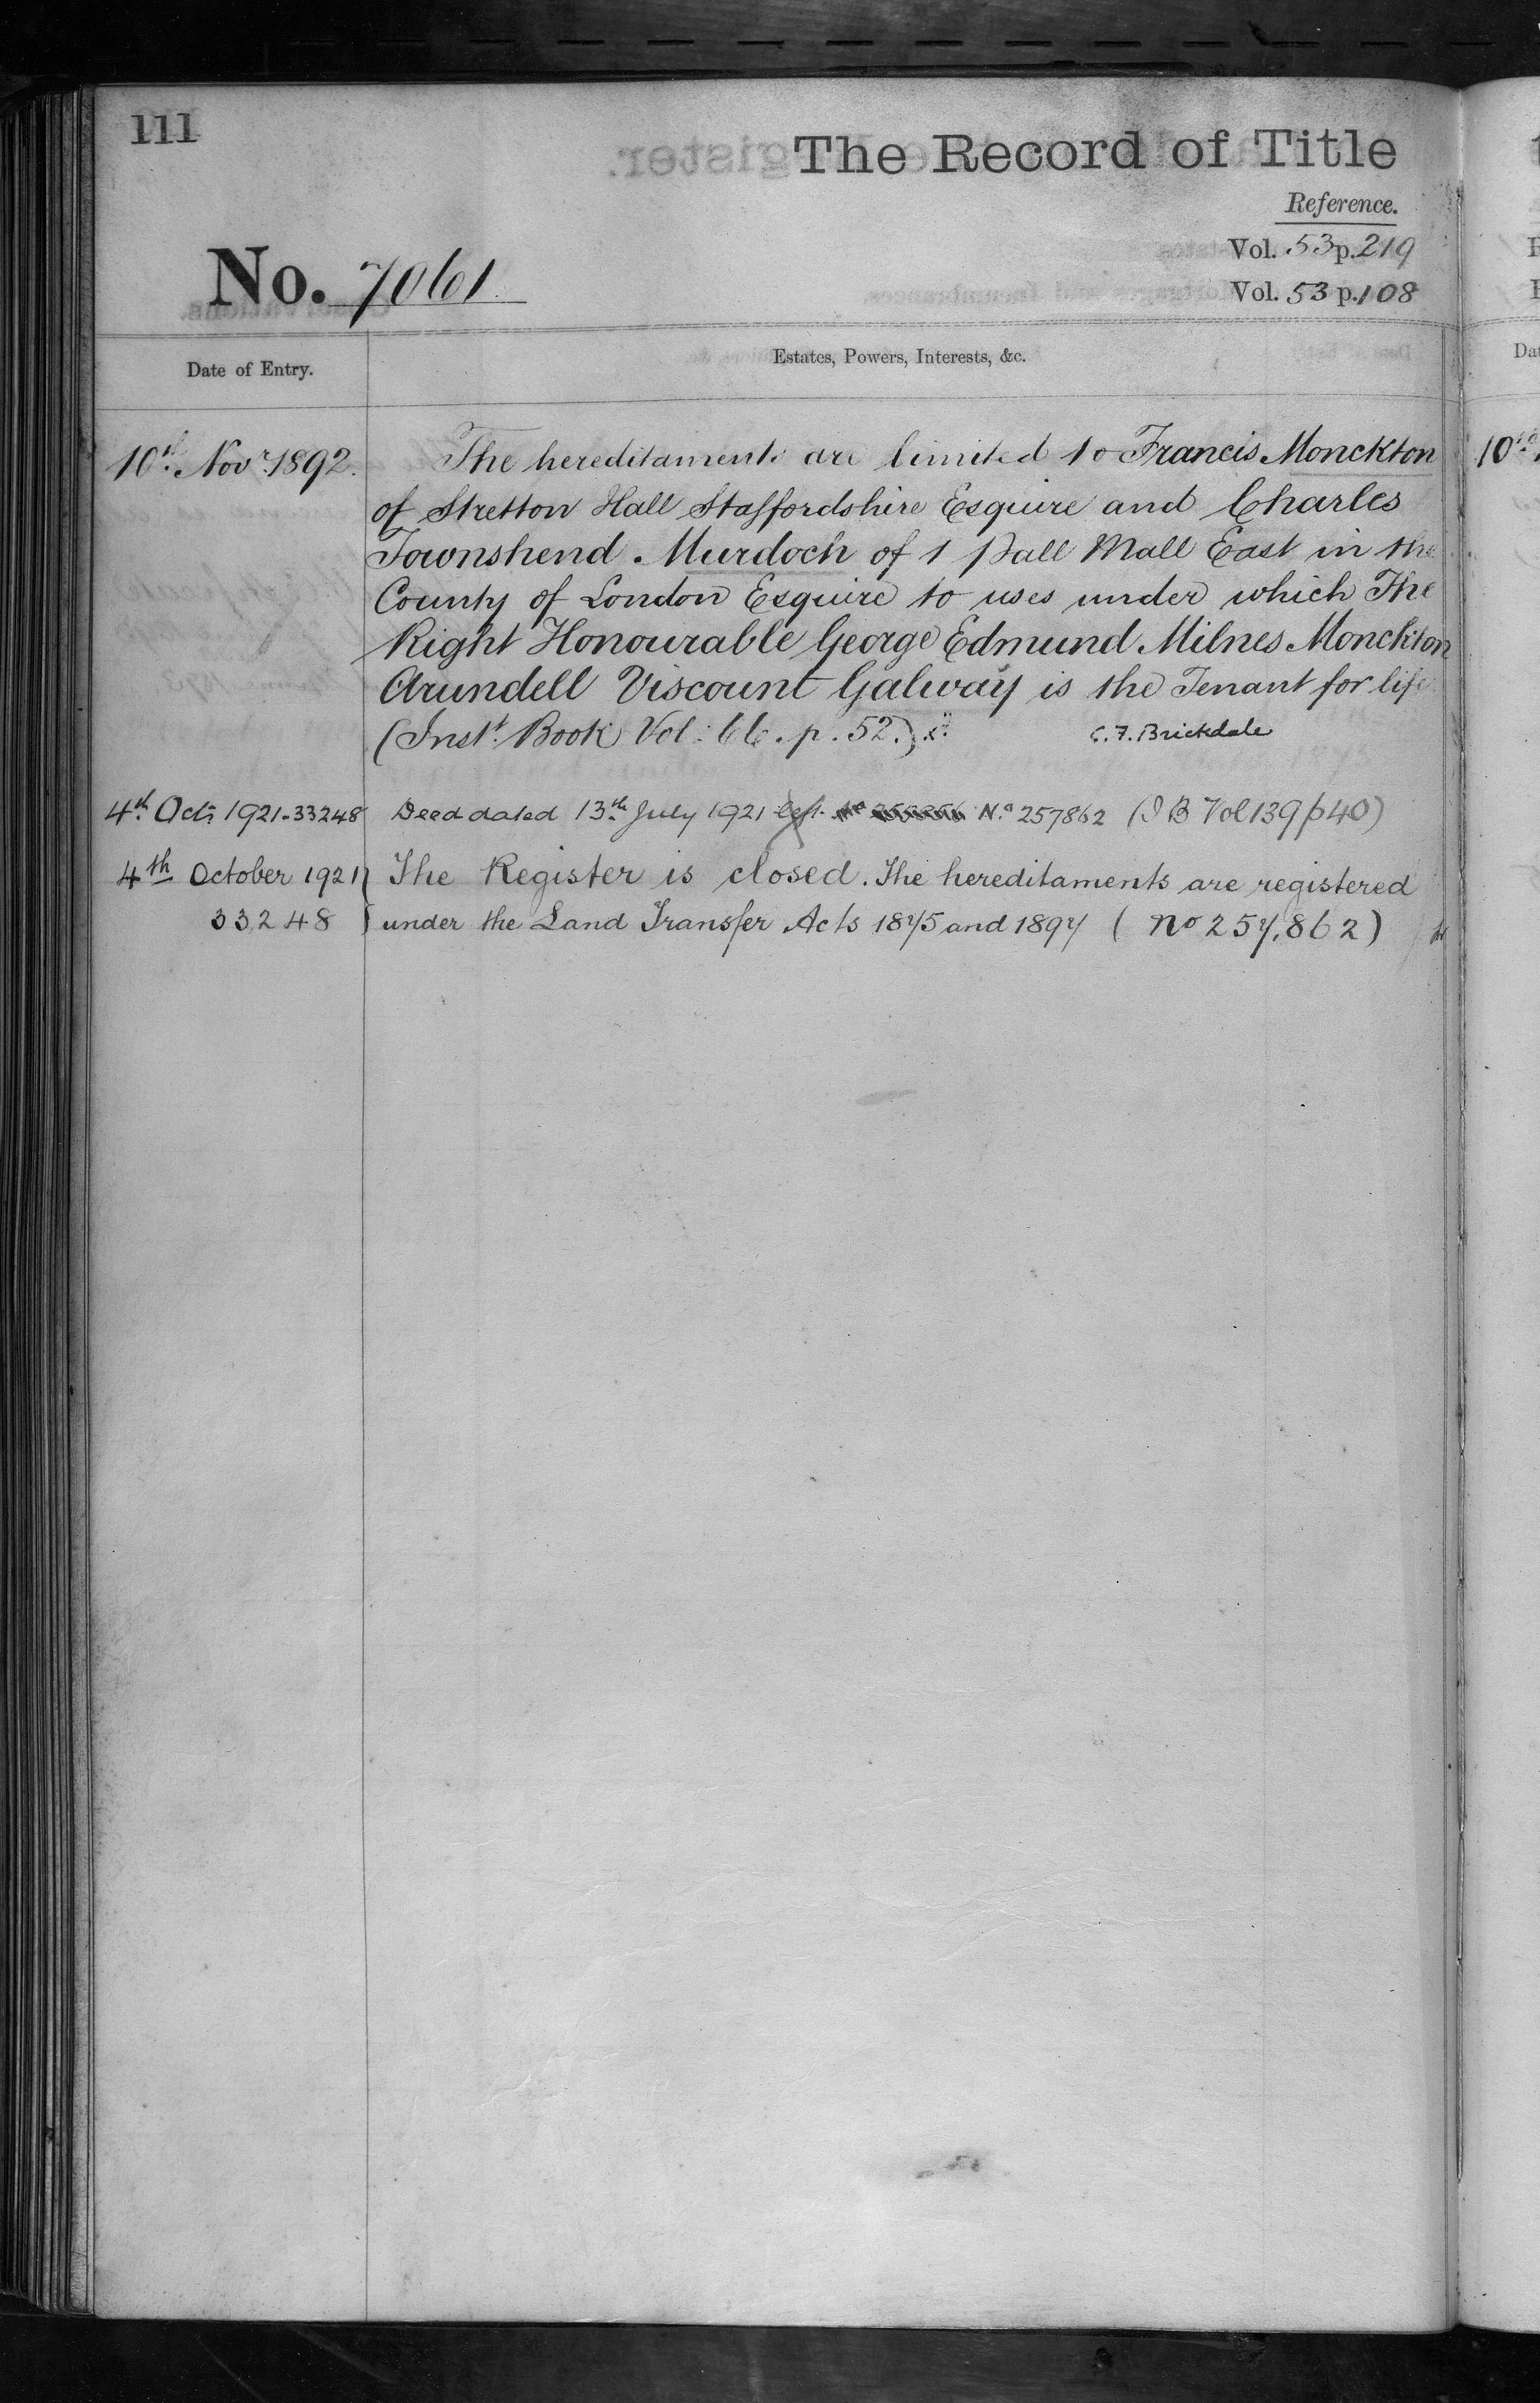 111
The Record of Title
Reference.
Vol. 53 p. 219
No. 7061
Vol. 53 p. 108
Date of Entry.
Estates, Powers, Interests, &c.
10th Novr 1892.
The hereditaments are limited to Francis Monckton
of Stretton Hall Staffordshire Esquire and Charles
Townshend Murdoch of 1 Pall Mall East in the
County of London Esquire to uses under which The
Right Honourable George Edmund Milnes Monckton
Arundell Viscount Galway is the Tenant for life
(Inst. Book Vol: 66. p. 52.)
C. F. Brickdale
4th Oct. 1921. 33248 Deed dated 13th July 1921 No 257862 (I B Vol 139 p 40)
4th October 1921 The Register is closed. The hereditaments are registered
33248 under the Land Transfer Acts 1875 and 1897 (No 257,862)
10th